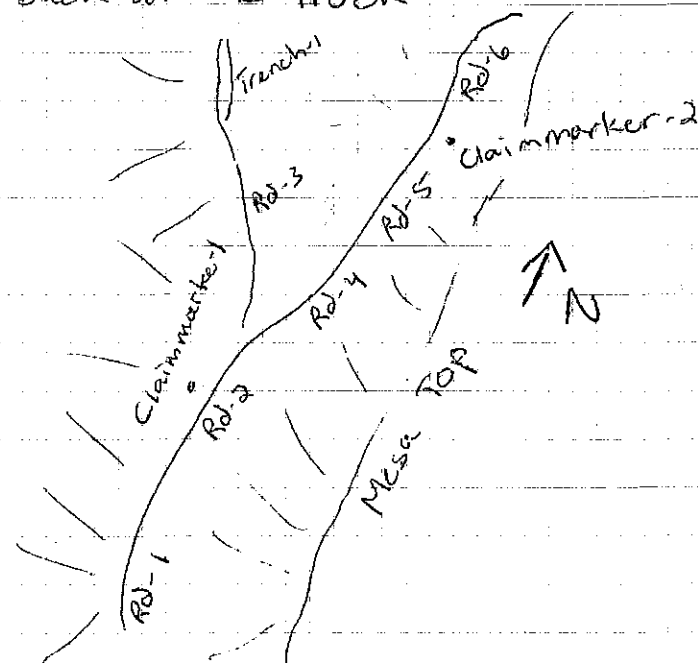 Trench-1
Rd-6
Claimmarker-2
Rd-3
Rd-5
Claimmarker-1
Rd-4
N
Rd-2
Mesa TOP
Rd-1